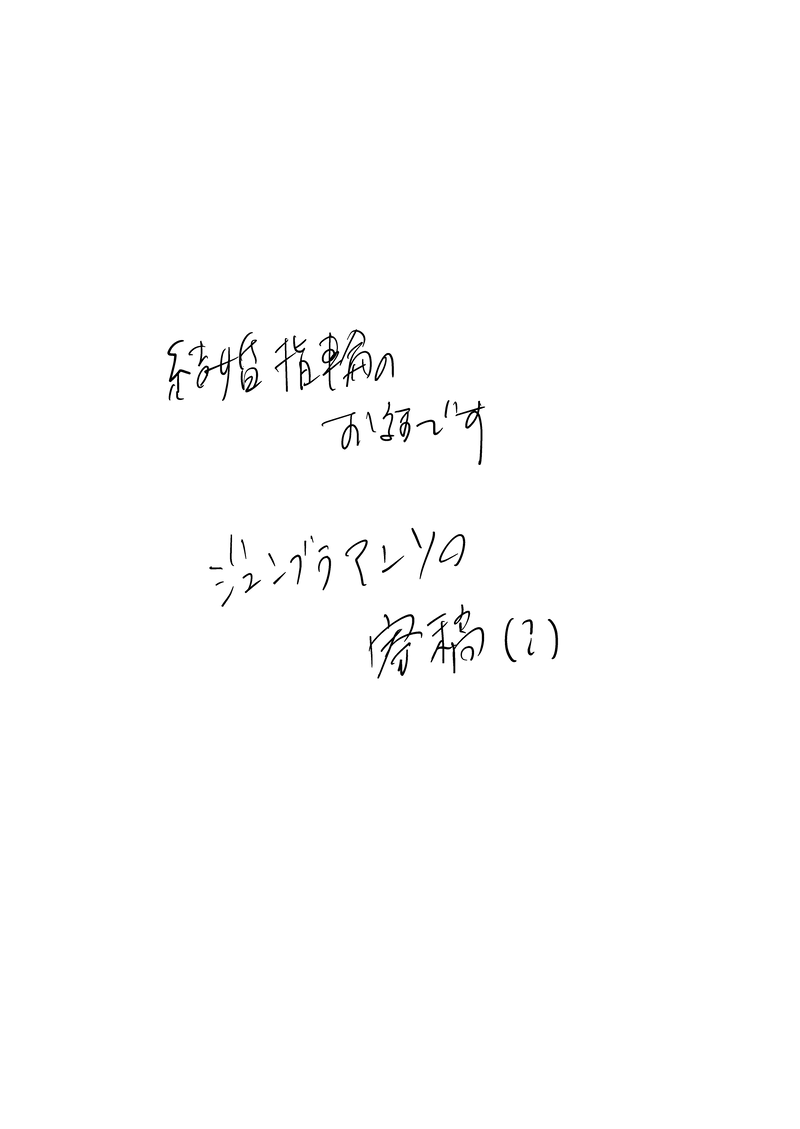 結婚指輪の
お話です
ジューンブライアンソロの
寄稿(?)